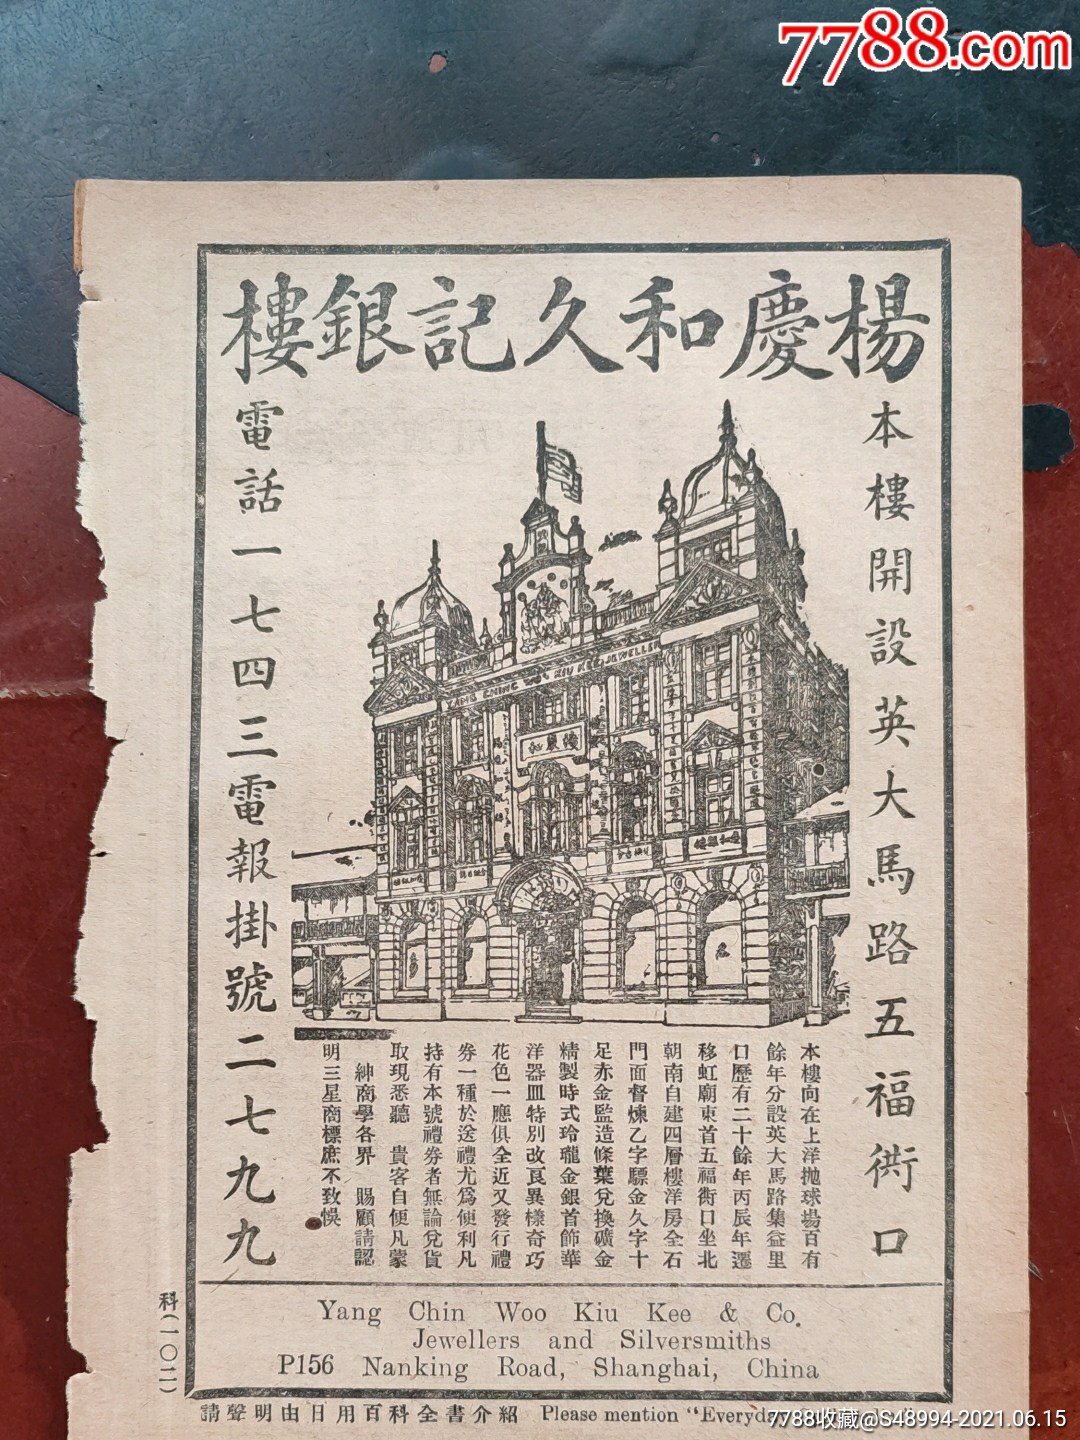 7788.com
楊慶和久記銀樓
本樓開設英大馬路五福衖口
電話一七四三電報掛號二七九九
YANG CHING WOO KIU KEE JEWELLER
本樓向在上洋拋球場百有
餘年分設英大馬路集益里
口歷有二十餘年丙辰年遷
移虹廟東首五福衖口坐北
朝南自建四層樓洋房全石
門面督煉乙字驃金久字十
足赤金監造條葉兌換礦金
精製時式玲瓏金銀首飾華
洋器皿特別改良異樣奇巧
花色一應俱全近又發行禮
券一種於送禮尤為便利凡
持有本號禮券者無論兌貨
取現悉聽 貴客自便凡蒙
紳商學各界 賜顧請認
明三星商標庶不致悞
Yang Chin Woo Kiu Kee & Co.
Jewellers and Silversmiths
P156 Nanking Road, Shanghai, China
科(一〇二)
請聲明由日用百科全書介紹 Please mention "Everyday
7788收藏@S48994-2021.06.15